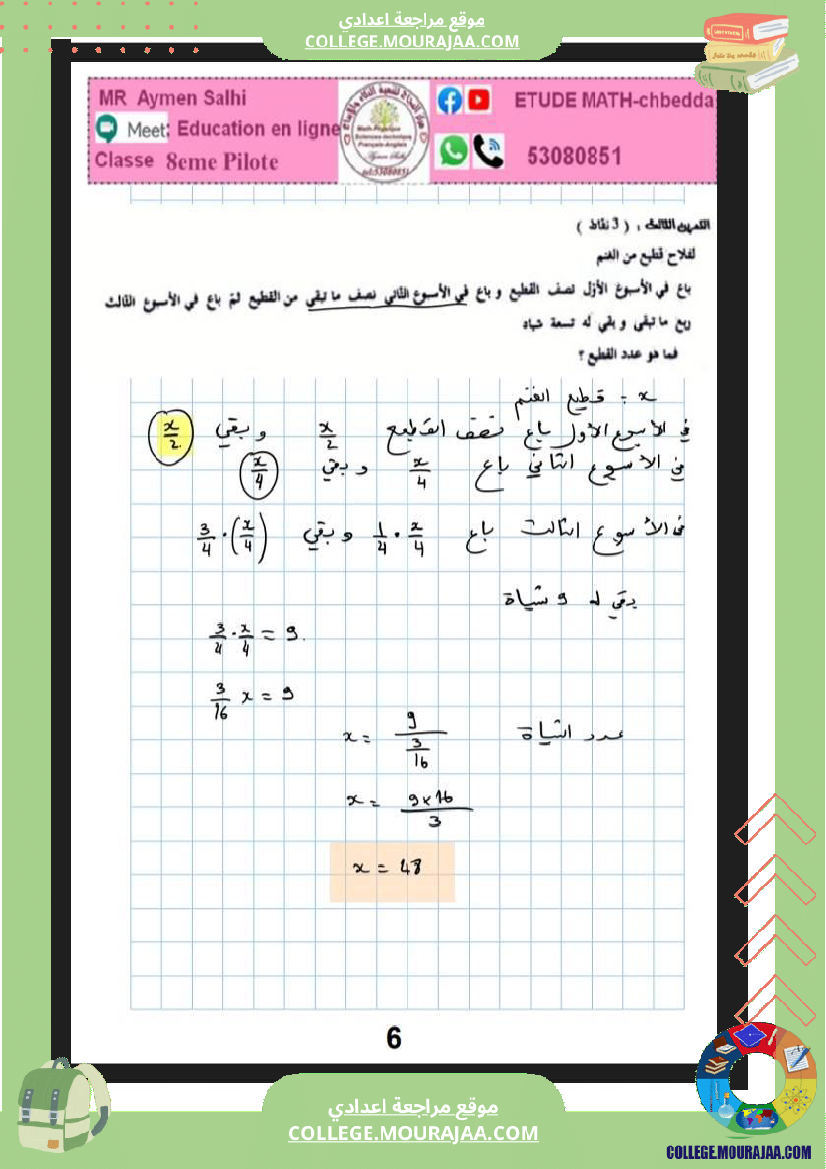 موقع مراجعة اعدادي
COLLEGE.MOURAJAA.COM
MR Aymen Salhi
Meet: Education en ligne
Classe 8eme Pilote
Math-Physique
Sciences-technique
Français-Anglais
Aymen Salhi
tel:53080851
ETUDE MATH-chbedda
53080851
التمرين الثالث : ( 3 نقاط )
لفلاح قطيع من الغنم
باع في الأسبوع الأول نصف القطيع و باع في الأسبوع الثاني نصف ما تبقى من القطيع ثم باع في الأسبوع الثالث
ربع ما تبقى و بقي له تسعة شياه
فما هو عدد القطيع ؟
x : قطيع الغنم
في الأسبوع الأول باع نصف القطيع x/2 و بقي x/2
في الأسبوع الثاني باع x/4 و بقي x/4
في الأسبوع الثالث باع 1/4 · x/4 و بقي 3/4 · (x/4)
بقي له 9 شياة
3/4 · x/4 = 9.
3/16 x = 9
عدد الشياة x = 9/(3/16)
x = 9 x 16/3
x = 48
6
موقع مراجعة اعدادي
COLLEGE.MOURAJAA.COM
COLLEGE.MOURAJAA.COM